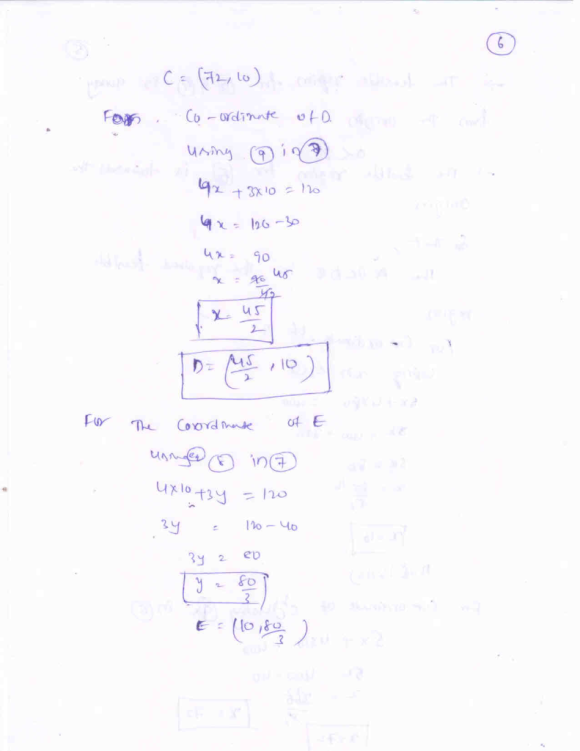 6
C = (72, 10)
For Co-ordinate of D
using (9) in (7)
4x + 3x10 = 120
4x = 120 - 30
4x = 90
x = 90 45
x = 45/2
D = (45/2, 10)
For The Coordinate of E
using eq (8) in (7)
4x10 + 3y = 120
3y = 120 - 40
3y = 80
y = 80/3
E = (10, 80/3)